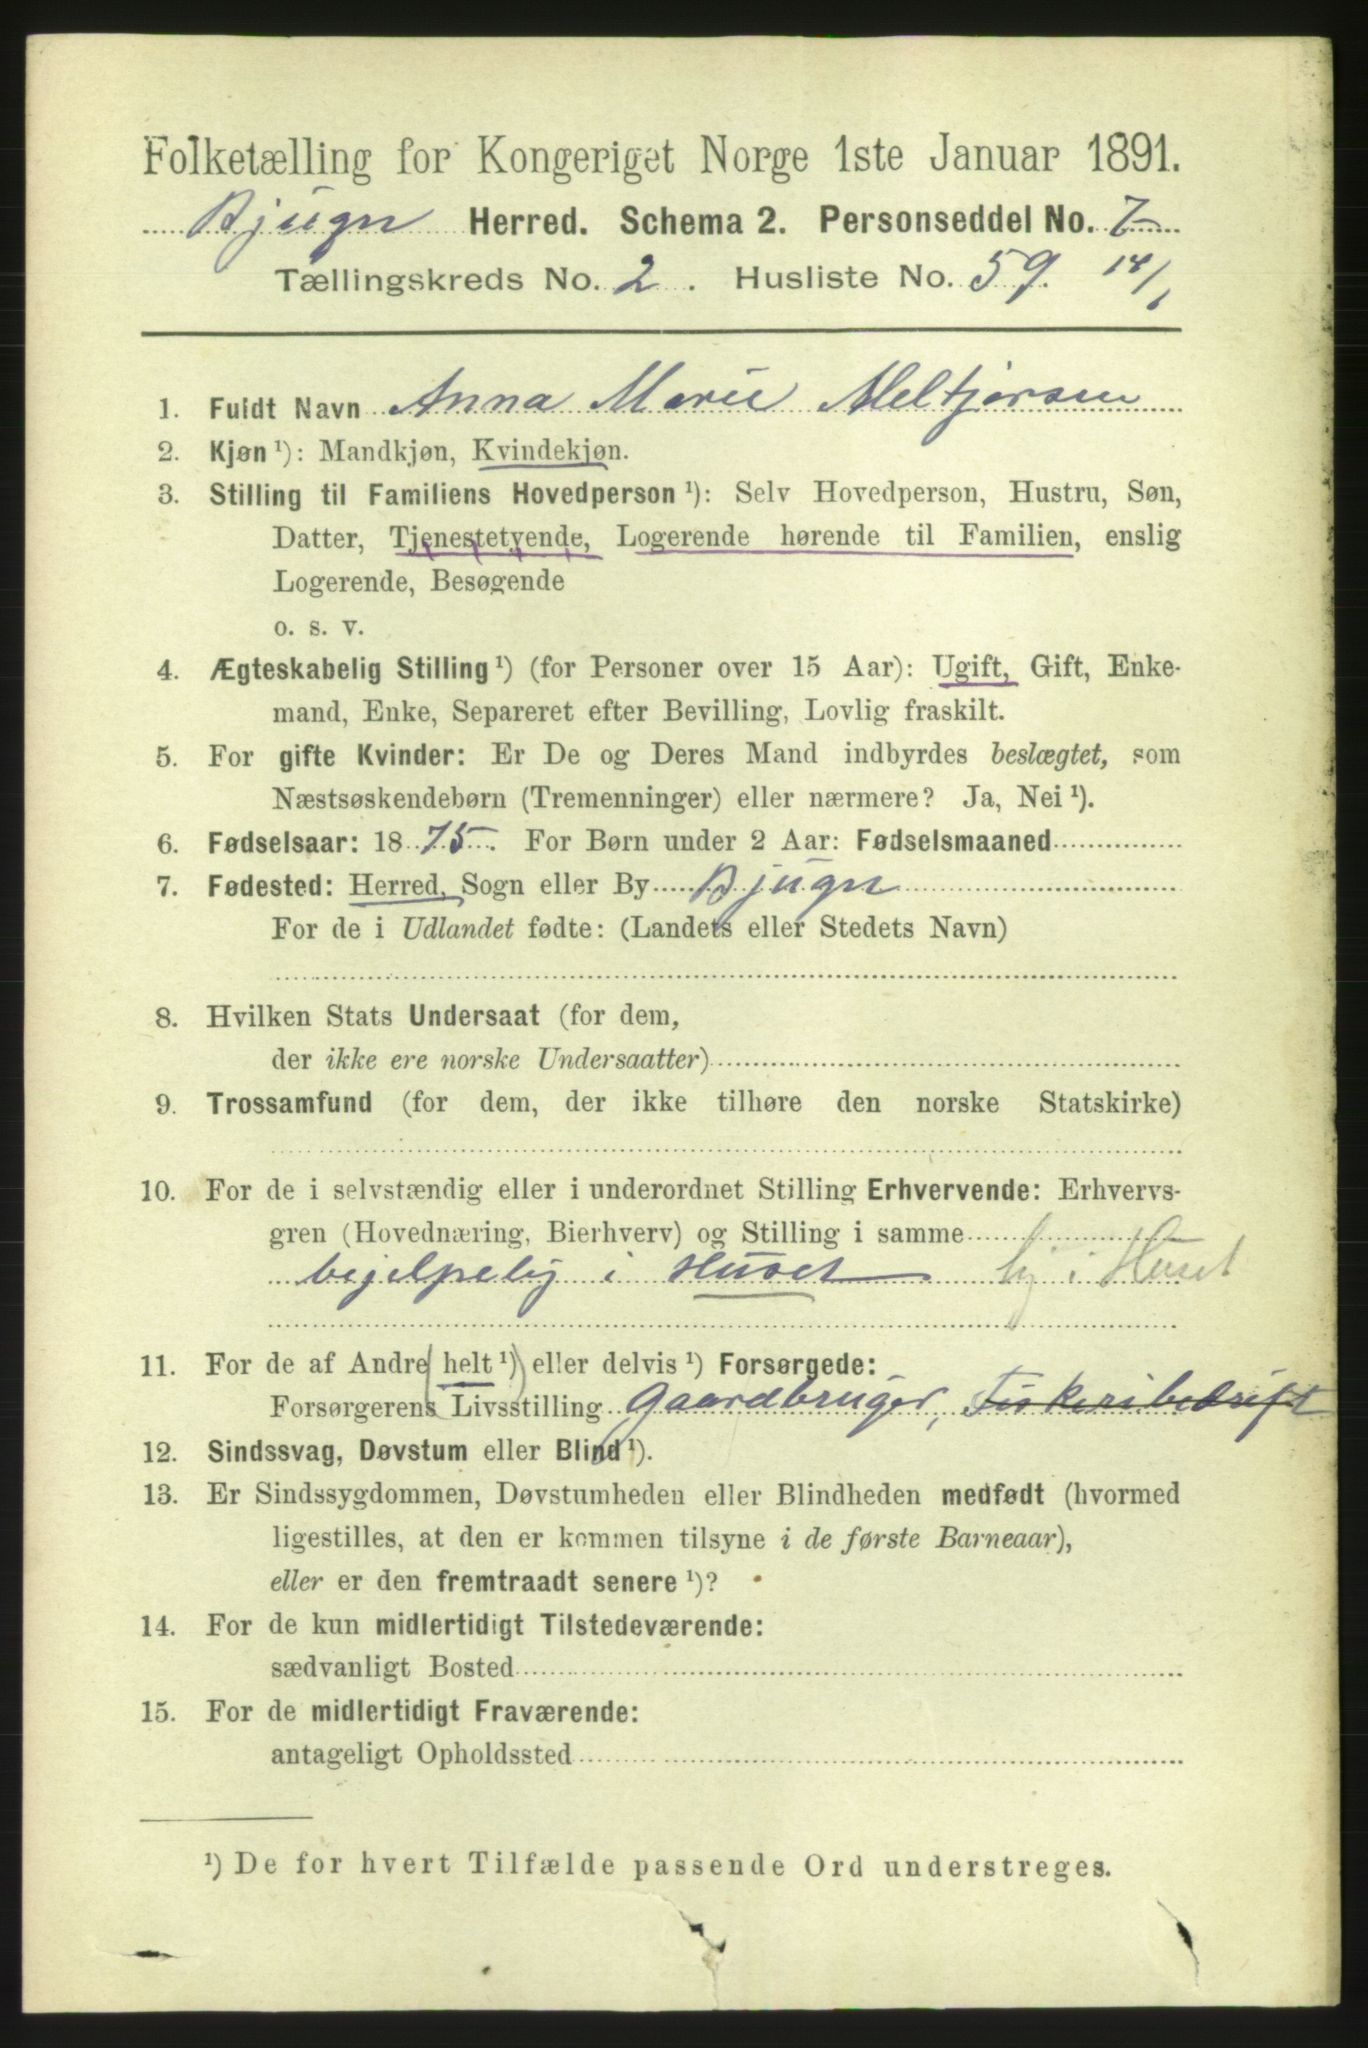 Folketælling for Kongeriget Norge 1ste Januar 1891.
Bjugn Herred. Schema 2. Personseddel No. 7
Tællingskreds No. 2. Husliste No. 59.
1. Fuldt Navn Anna Marie Meltjorsen
2. Kjøn ¹): Mandkjøn, Kvindekjøn.
3. Stilling til Familiens Hovedperson ¹): Selv Hovedperson, Hustru, Søn,
Datter, Tjenestetyende, Logerende hørende til Familien, enslig
Logerende, Besøgende
o. s. v.
4. Ægteskabelig Stilling ¹) (for Personer over 15 Aar): Ugift, Gift, Enke-
mand, Enke, Separeret efter Bevilling, Lovlig fraskilt.
5. For gifte Kvinder: Er De og Deres Mand indbyrdes beslægtet, som
Næstsøskendebørn (Tremenninger) eller nærmere? Ja, Nei ¹).
6. Fødselsaar: 1875. For Børn under 2 Aar: Fødselsmaaned
7. Fødested: Herred, Sogn eller By Bjugn
For de i Udlandet fødte: (Landets eller Stedets Navn)
8. Hvilken Stats Undersaat (for dem,
der ikke ere norske Undersaatter)
9. Trossamfund (for dem, der ikke tilhøre den norske Statskirke)
10. For de i selvstændig eller i underordnet Stilling Erhvervende: Erhvervs-
gren (Hovednæring, Bierhverv) og Stilling i samme
behjelpelig i Huset hj i Huset
11. For de af Andre (helt ¹) eller delvis ¹) Forsørgede:
Forsørgerens Livsstilling Gaardbruger, Fiskeribedrift
12. Sindssvag, Døvstum eller Blind ¹).
13. Er Sindssygdommen, Døvstumheden eller Blindheden medfødt (hvormed
ligestilles, at den er kommen tilsyne i de første Barneaar),
eller er den fremtraadt senere ¹)?
14. For de kun midlertidigt Tilstedeværende:
sædvanligt Bosted
15. For de midlertidigt Fraværende:
antageligt Opholdssted
¹) De for hvert Tilfælde passende Ord understreges.